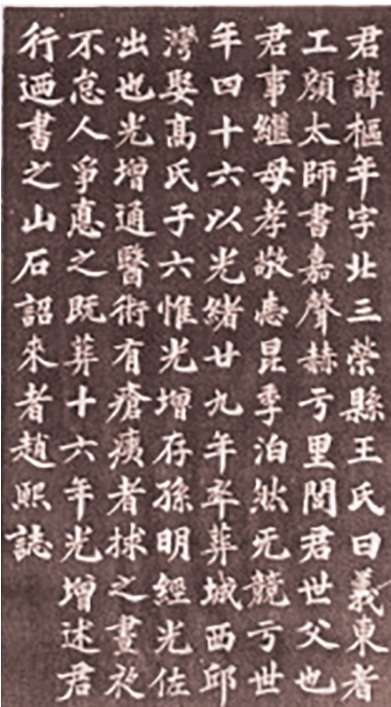 君諱樞年字北三榮縣王氏曰義東者
工顏太師書嘉聲赫亏里閭君世父也
君事繼母孝敬㤅昆季泊然无競亏世
年四十六以光緒廿九年卒葬城西邱
灣娶髙氏子六惟光增存孫明經光佐
出也光增通醫術有瘡痍者捄之晝夜
不怠人爭悳之既葬十六年光增述君
行迺書之山石詔來者趙熙誌